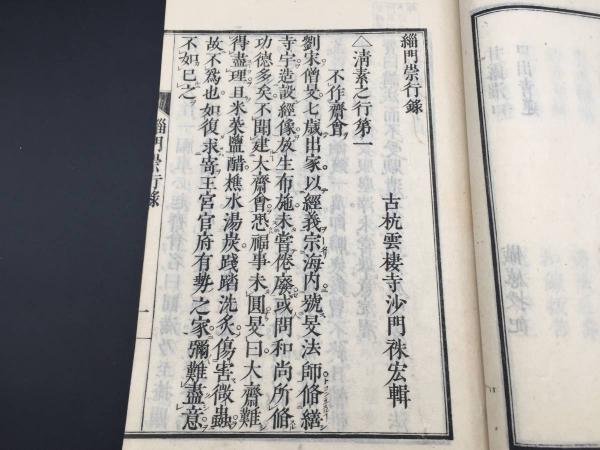 緇門崇行錄
古杭雲棲寺沙門袾宏輯
△清素之行第一
不作齋會
劉宋僧旻七歲出家以經義宗海内號旻法師脩繕
寺宇造設經像放生布施未嘗倦廢或問和尚所脩
功德多矣不聞建大齋會恐福事未圓旻曰大齋難
得盡理且米菜鹽醋樵水湯炭踐踏洗炙傷害微蟲
故不爲也如復求寄王宮官府有勢之家彌難盡意
不如已之
緇門崇行錄
一